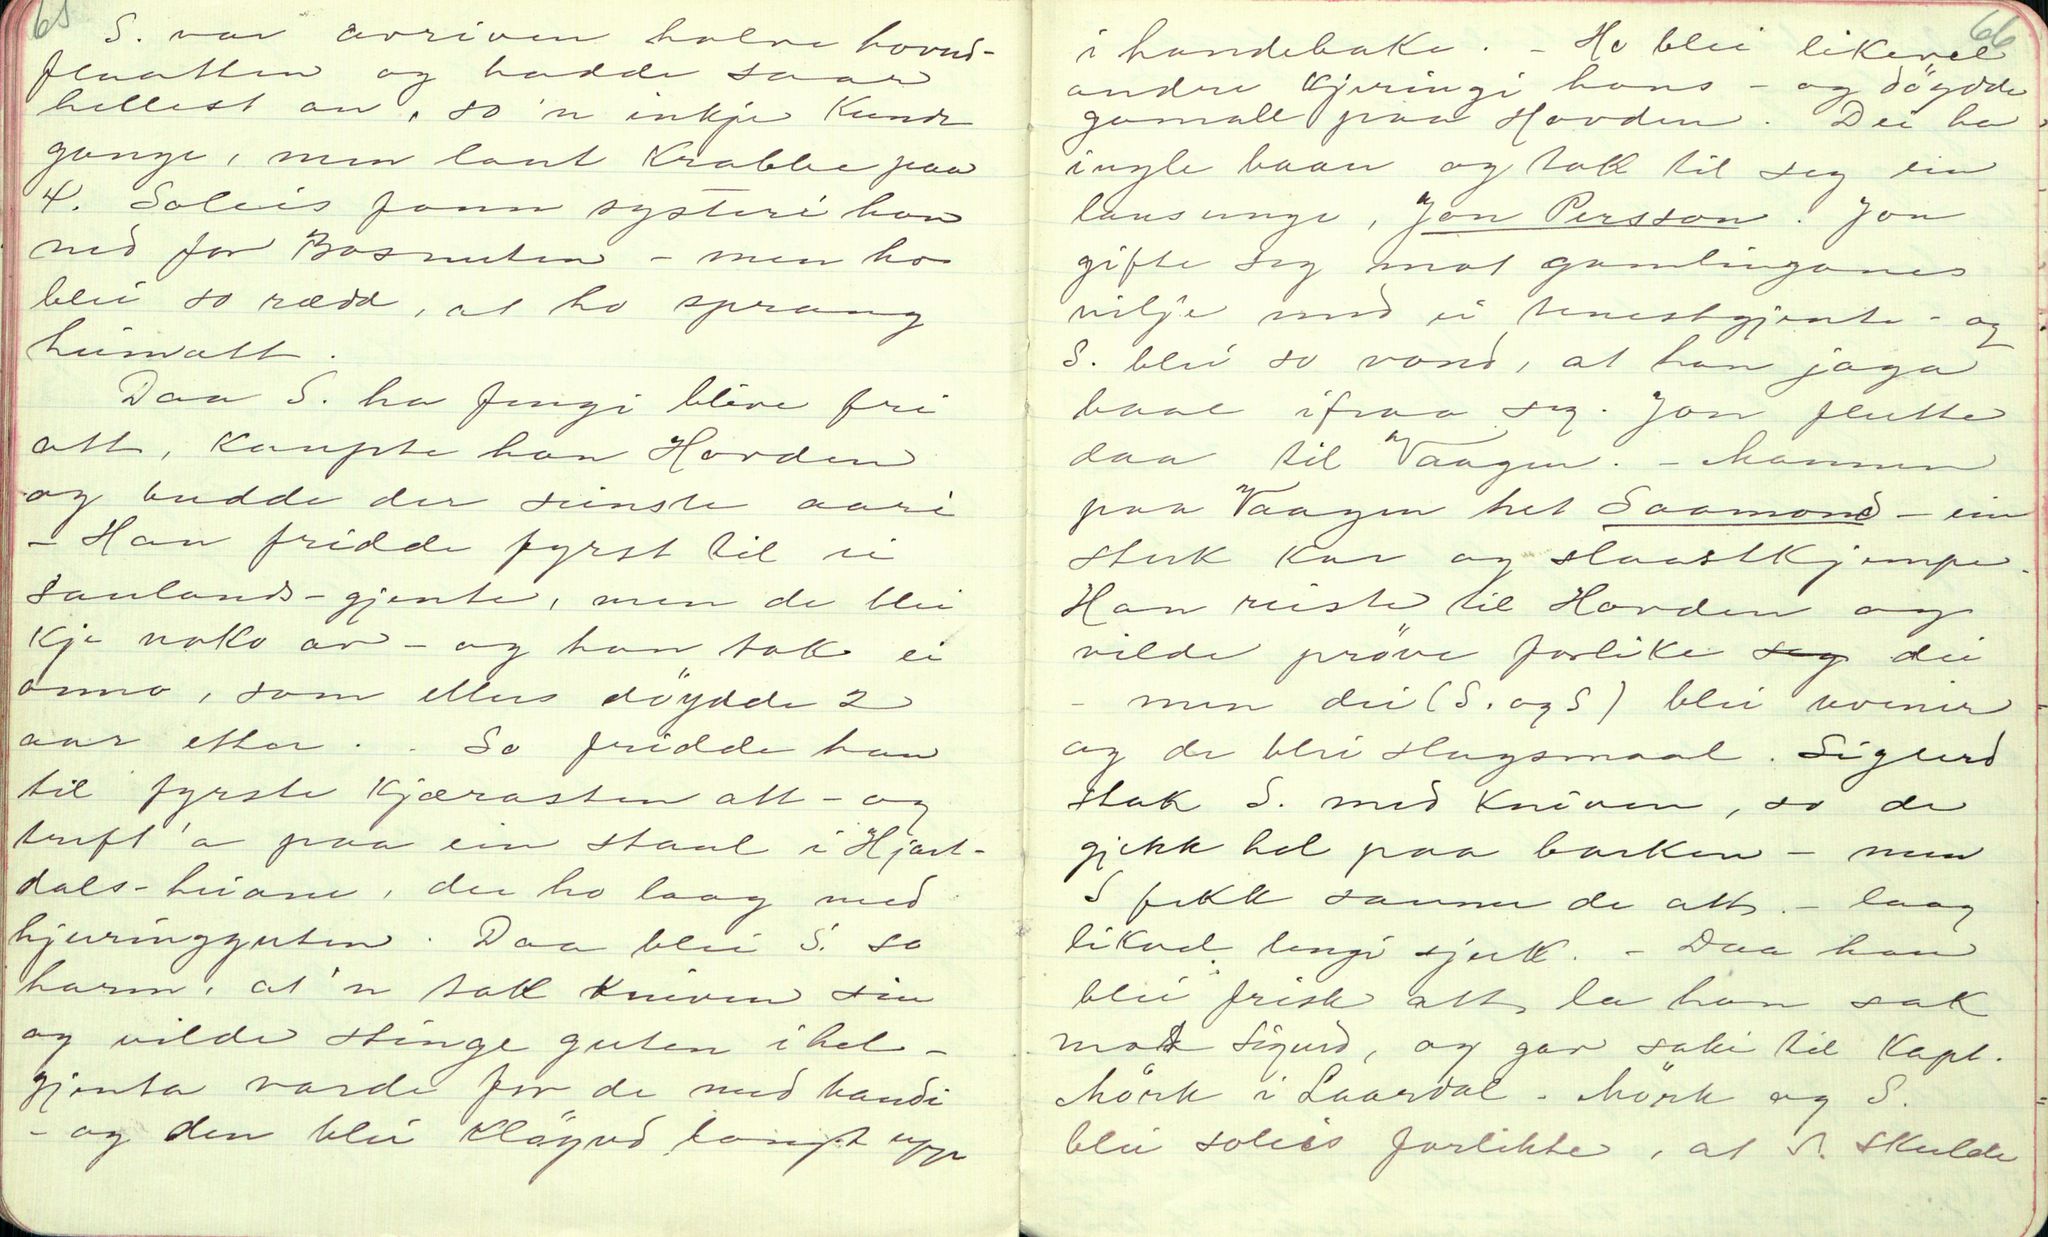 65
S. var avriven halve hovud-
flaatten og hadde saar
hellest an, so 'n inkje kunde
gange, men laut krabbe paa
4. Soleis fann systeri han
ned for Bosnuten - men ho
blei so rædd, at ho sprang
heimatt.
Daa S. ha fengi blive fri
att, kaupte han Hovden
og budde der seinste aari
- Han fridde fyrst til ei
saulands-gjente, men de blei
kje noko av - og han tok ei
anno, som ellers döydde 2
aar etter. . So fridde han
til fyrste kjærasten att - og
treft 'a paa ein staal i Hjart-
dals-heiane, der ho laag med
hjuringguten. Daa blei S. so
harm, at 'n tok kniven sin
og vilde stinge guten ihel -
gjenta varde for de med handi
- og den blei klöyvd langt upp
66
i handebake. - Ho blei likevel
andre kjeringi hans - og döydde
gamall paa Hovden. Dei ha
ingle baan og tok til seg ein
lausunge, Jon Persson. Jon
gifte seg mot gamlinganes
vilje med ei tenestgjente - og
S. blei so vond, at han jaga
baae ifraa seg. Jon flutte
daa til Vaagen. - Mannen
paa Vaagen het Saamond - ein
sterk kar og slaastkjempe.
Han reiste til Hovden og
vilde pröve forlike seg dei
- men dei (S. og S) blei uvenir
og de blei slagsmaal. Sigurd
stak S. med kniven, so de
gjekk hol paa barken - men
S fekk saume de att. - laag
likavel lengi sjuk. - Daa han
blei frisk att, la han sak
mot Sigurd, og gav saki til Kapt.
Mörk i Laardal. Mörk og S.
blei soleis forlikte, at S. skulde